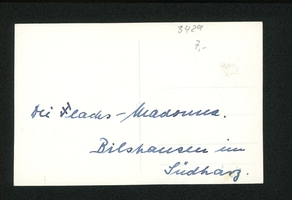 3429
7,-
Die Flachs-Madonna.
Bilshausen im
Südharz.